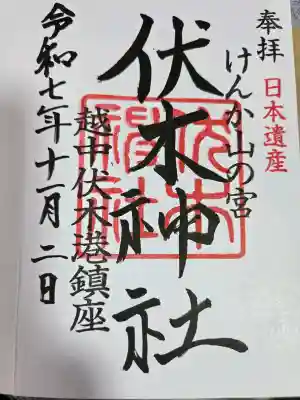 奉拝
日本遺産
けんか山の宮
伏木神社
伏木神社
越中伏木港鎮座
令和七年十一月二日